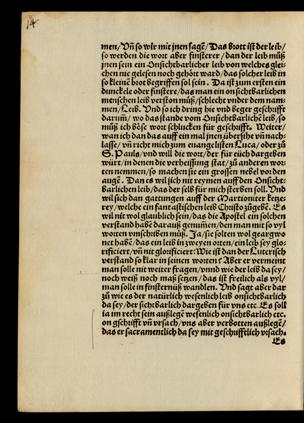 14
men/ Vñ so wir mit jnen sagẽ/ Das brott ist der leib/
so werden die wort aber finsterer/ dan der leib můß
jnen sein ein Onsichtbarlicher leib von welches glei-
chen nie gelesen noch gehört ward/ das solcher leib in
so kleinẽ brot begriffen sol sein. Da ist zum ersten ein
dunckele oder finstere/ das man ein onsichtbarlichen
menschen leib verston můß/ schlecht vnder dem nam-
men/ Leib. Vnd so ich dring hie vnd beger geschrifft
darum̃/ wo das stande vom Onsichtbarlichẽ leib/ so
můß ich böse wort schlucken für geschrifft. Weiter/
wan ich dan das auff ein mal jnen übersihe vñ nach-
lasse/ vñ richt mich zum euangelisten Luca/ oder zů
S. Pauls/ vnd will die wort/ der für euch dargeben
würt/ in denen die verheissung stat/ zů anderen wor
ten nemmen/ so machen sie ein grossen nebel vor den
augẽ. Dan es wil sich nit reymen auff den Onsicht-
Barlichen leib/ das der selb für mich sterben soll. Vnd
wil sich dan gattungen auff der Martioniter ketze-
rey/ welche ein fantastischen leib Christo zůgebẽ. Es
wil nit wol glaublich sein/ das die Apostel ein solchen
verstand habẽ darauß genum̃en/ den man mit so vyl
worten vmschriben můß. Ja/ sie solten wol geargwo
net habẽ/ das ein leib in zweyen orten/ ein leib sey glo-
rificiert/ vñ nit glorificiert. Wie ist dan der Luterisch
verstand so klar in seinen worten? Aber er vermeint
man solle nit weiter fragen/ vnnd wie der leib da sey/
noch weiß noch maß setzen/ das ist freilich als vyl/
man solle in finsternüß wandlen. Vnd sagt aber dar
zů wie es der natürlich wesenlich leib onsichtbarlich
da sey/ der sichtbarlich dargeben für vns etc. Es soll
ia im recht sein außlegẽ wesenlich onsichtbarlich etc.
on gschrifft vñ vrsach/ vns aber verbotten außlegẽ/
das er sacramentlich da sey mit geschrifftlich vrsach.
Es